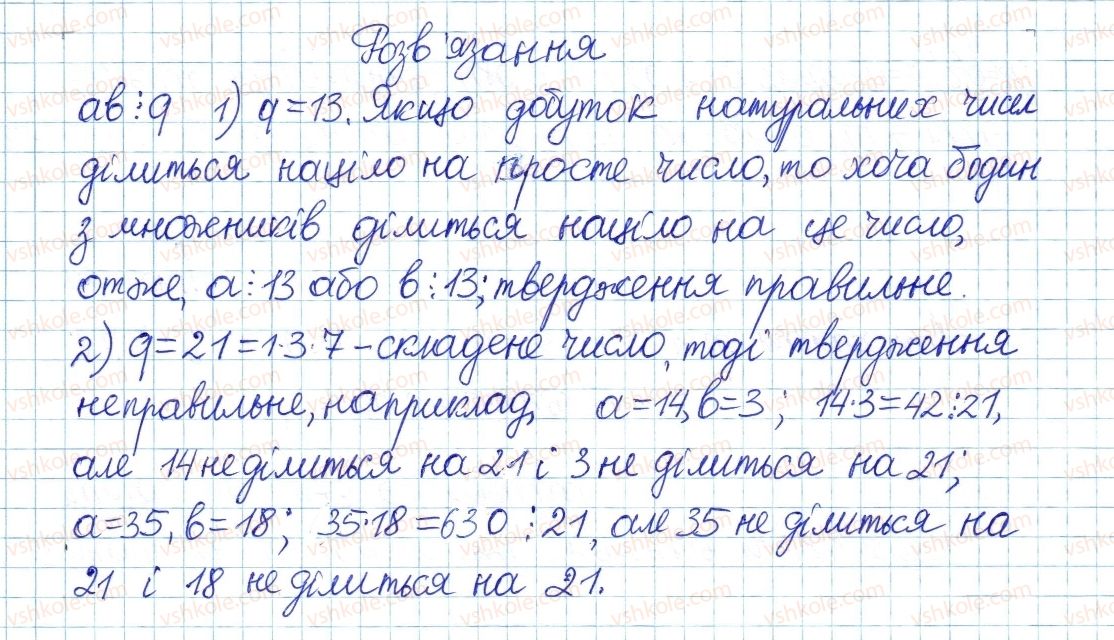 Розв'язання
ab⋮q 1) q=13. Якщо добуток натуральних чисел
ділиться націло на просте число, то хоча б один
з множників ділиться націло на це число,
отже, a⋮13 або b⋮13; твердження правильне.
2) q=21=1·3·7 – складене число, тоді твердження
неправильне, наприклад, a=14, b=3; 14·3=42⋮21,
але 14 не ділиться на 21 і 3 не ділиться на 21;
a=35, b=18; 35·18=630⋮21, але 35 не ділиться на
21 і 18 не ділиться на 21.